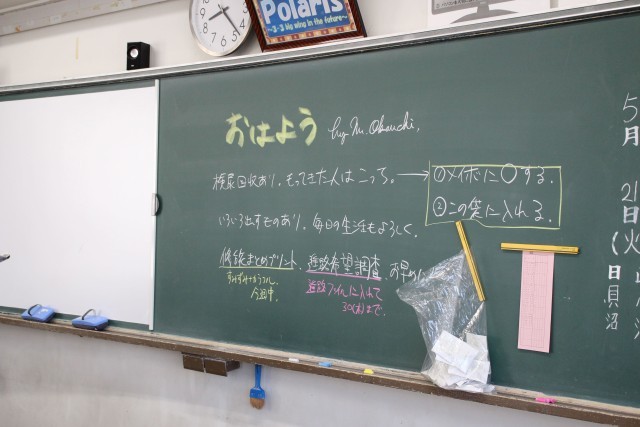 Polaris
~3-3 his wing in the future~
おはよう by M. Okouchi,
検尿回収あり。もってきた人はこっち。→
①メイボに○する。
②この袋に入れる。
いろいろ出すものあり。毎日の生活もよろしく。
修後まとめプリント、進路希望調査、お早めに
今週中。
進路ファイルに入れて
30(木)まで。
5
月
21
日
(火
日
貝
沼